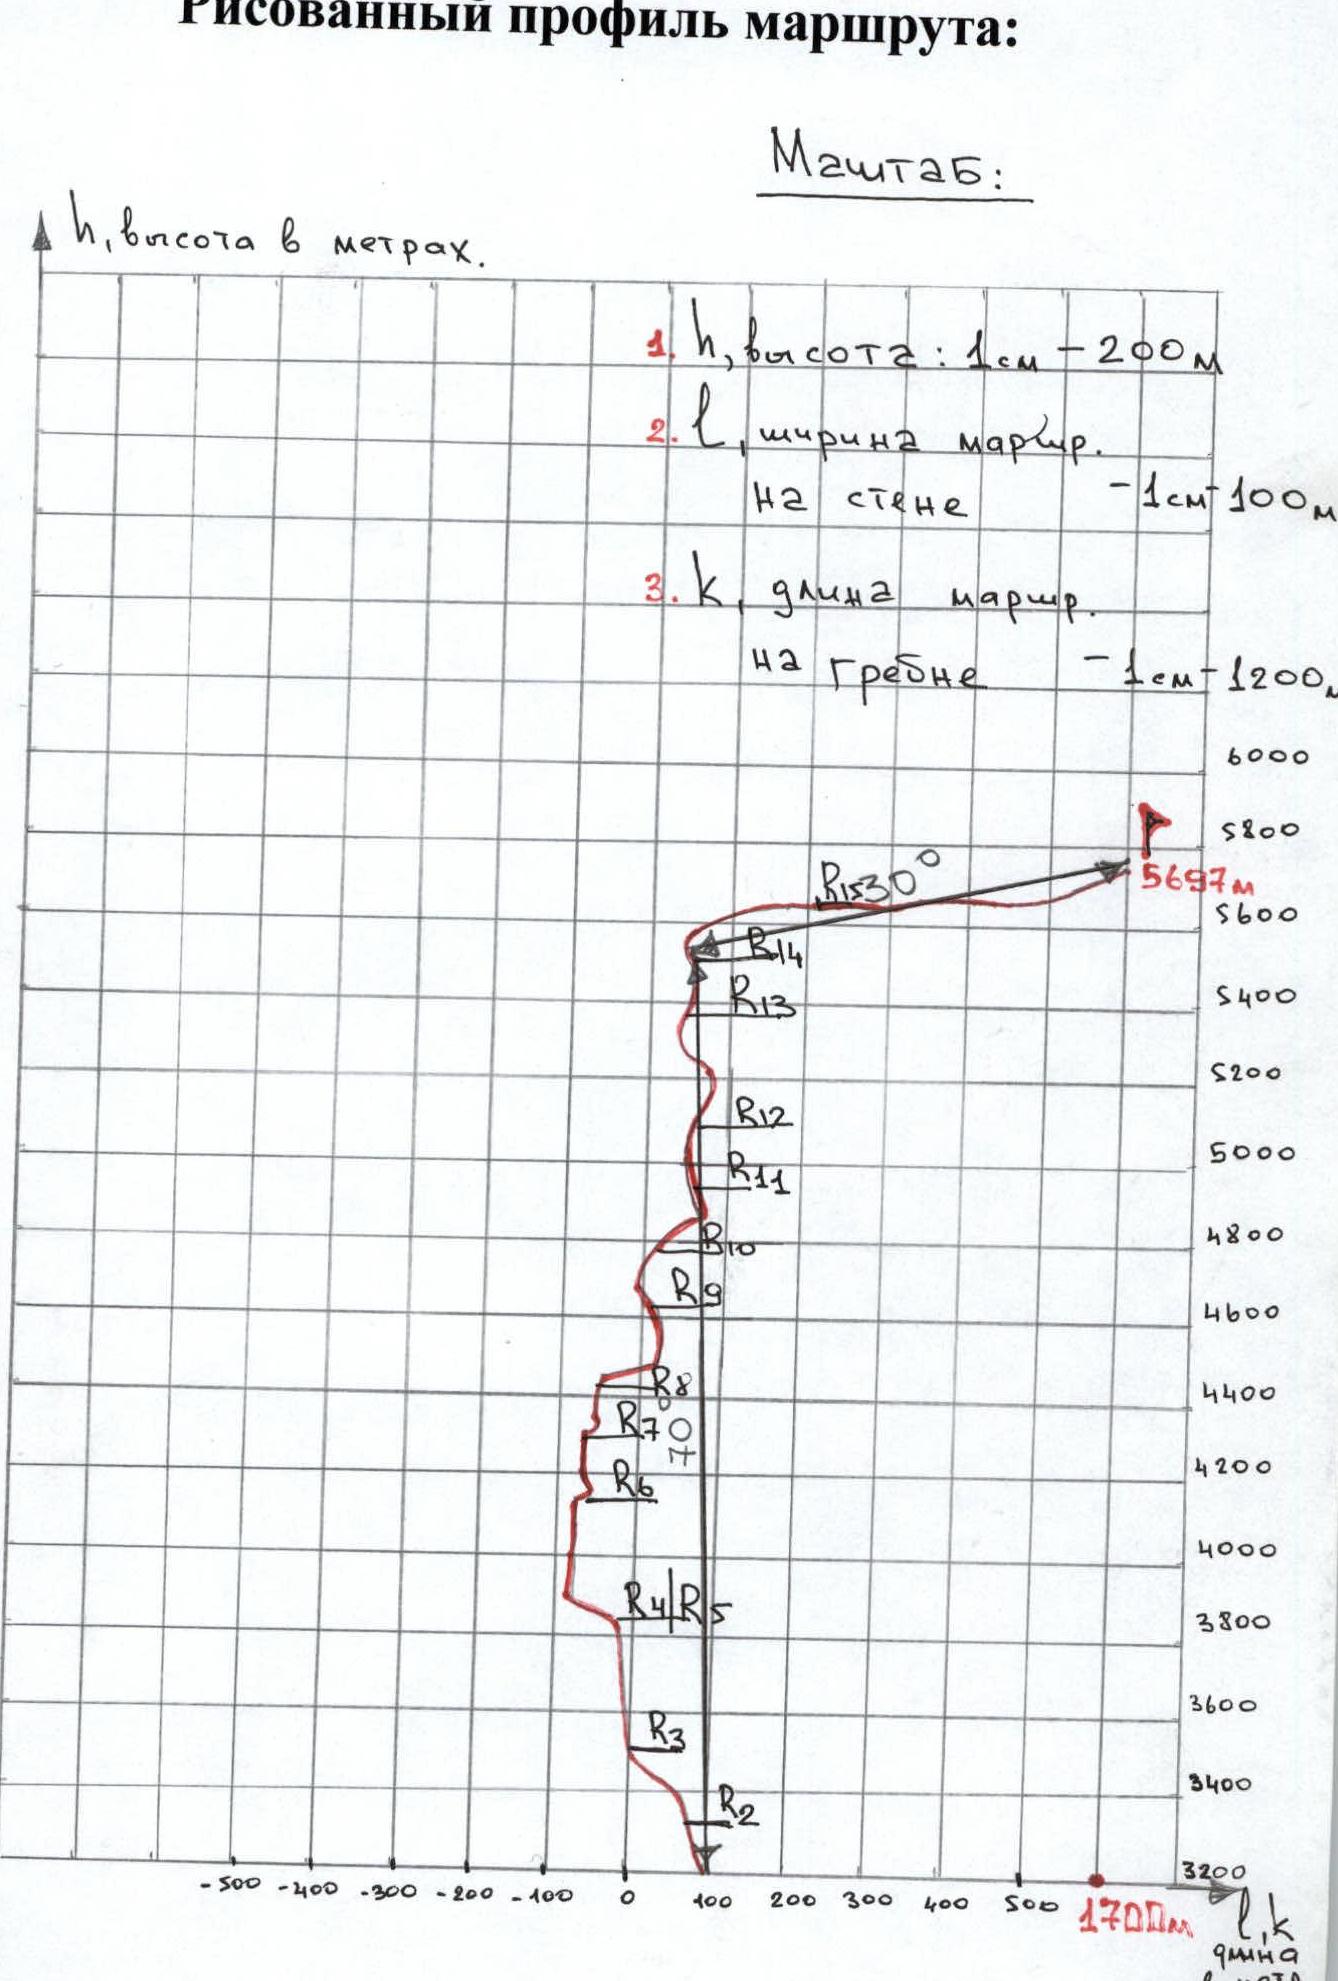 Рисованный профиль маршрута:
Маштаб:
h, высота в метрах.
1. h, высота: 1см - 200м
2. l, ширина маршр.
на стене - 1см - 100м
3. k, длина маршр.
на гребне - 1см - 1200м
6000
5800
R15 30°
5697м
5600
R14
R13
5400
5200
R12
5000
R11
4800
R10
R9
4600
R8
4400
R7
70°
R6
4200
4000
R4 R5
3800
3600
R3
3400
R2
3200
-500 -400 -300 -200 -100 0 100 200 300 400 500
1700м
l, k
длина